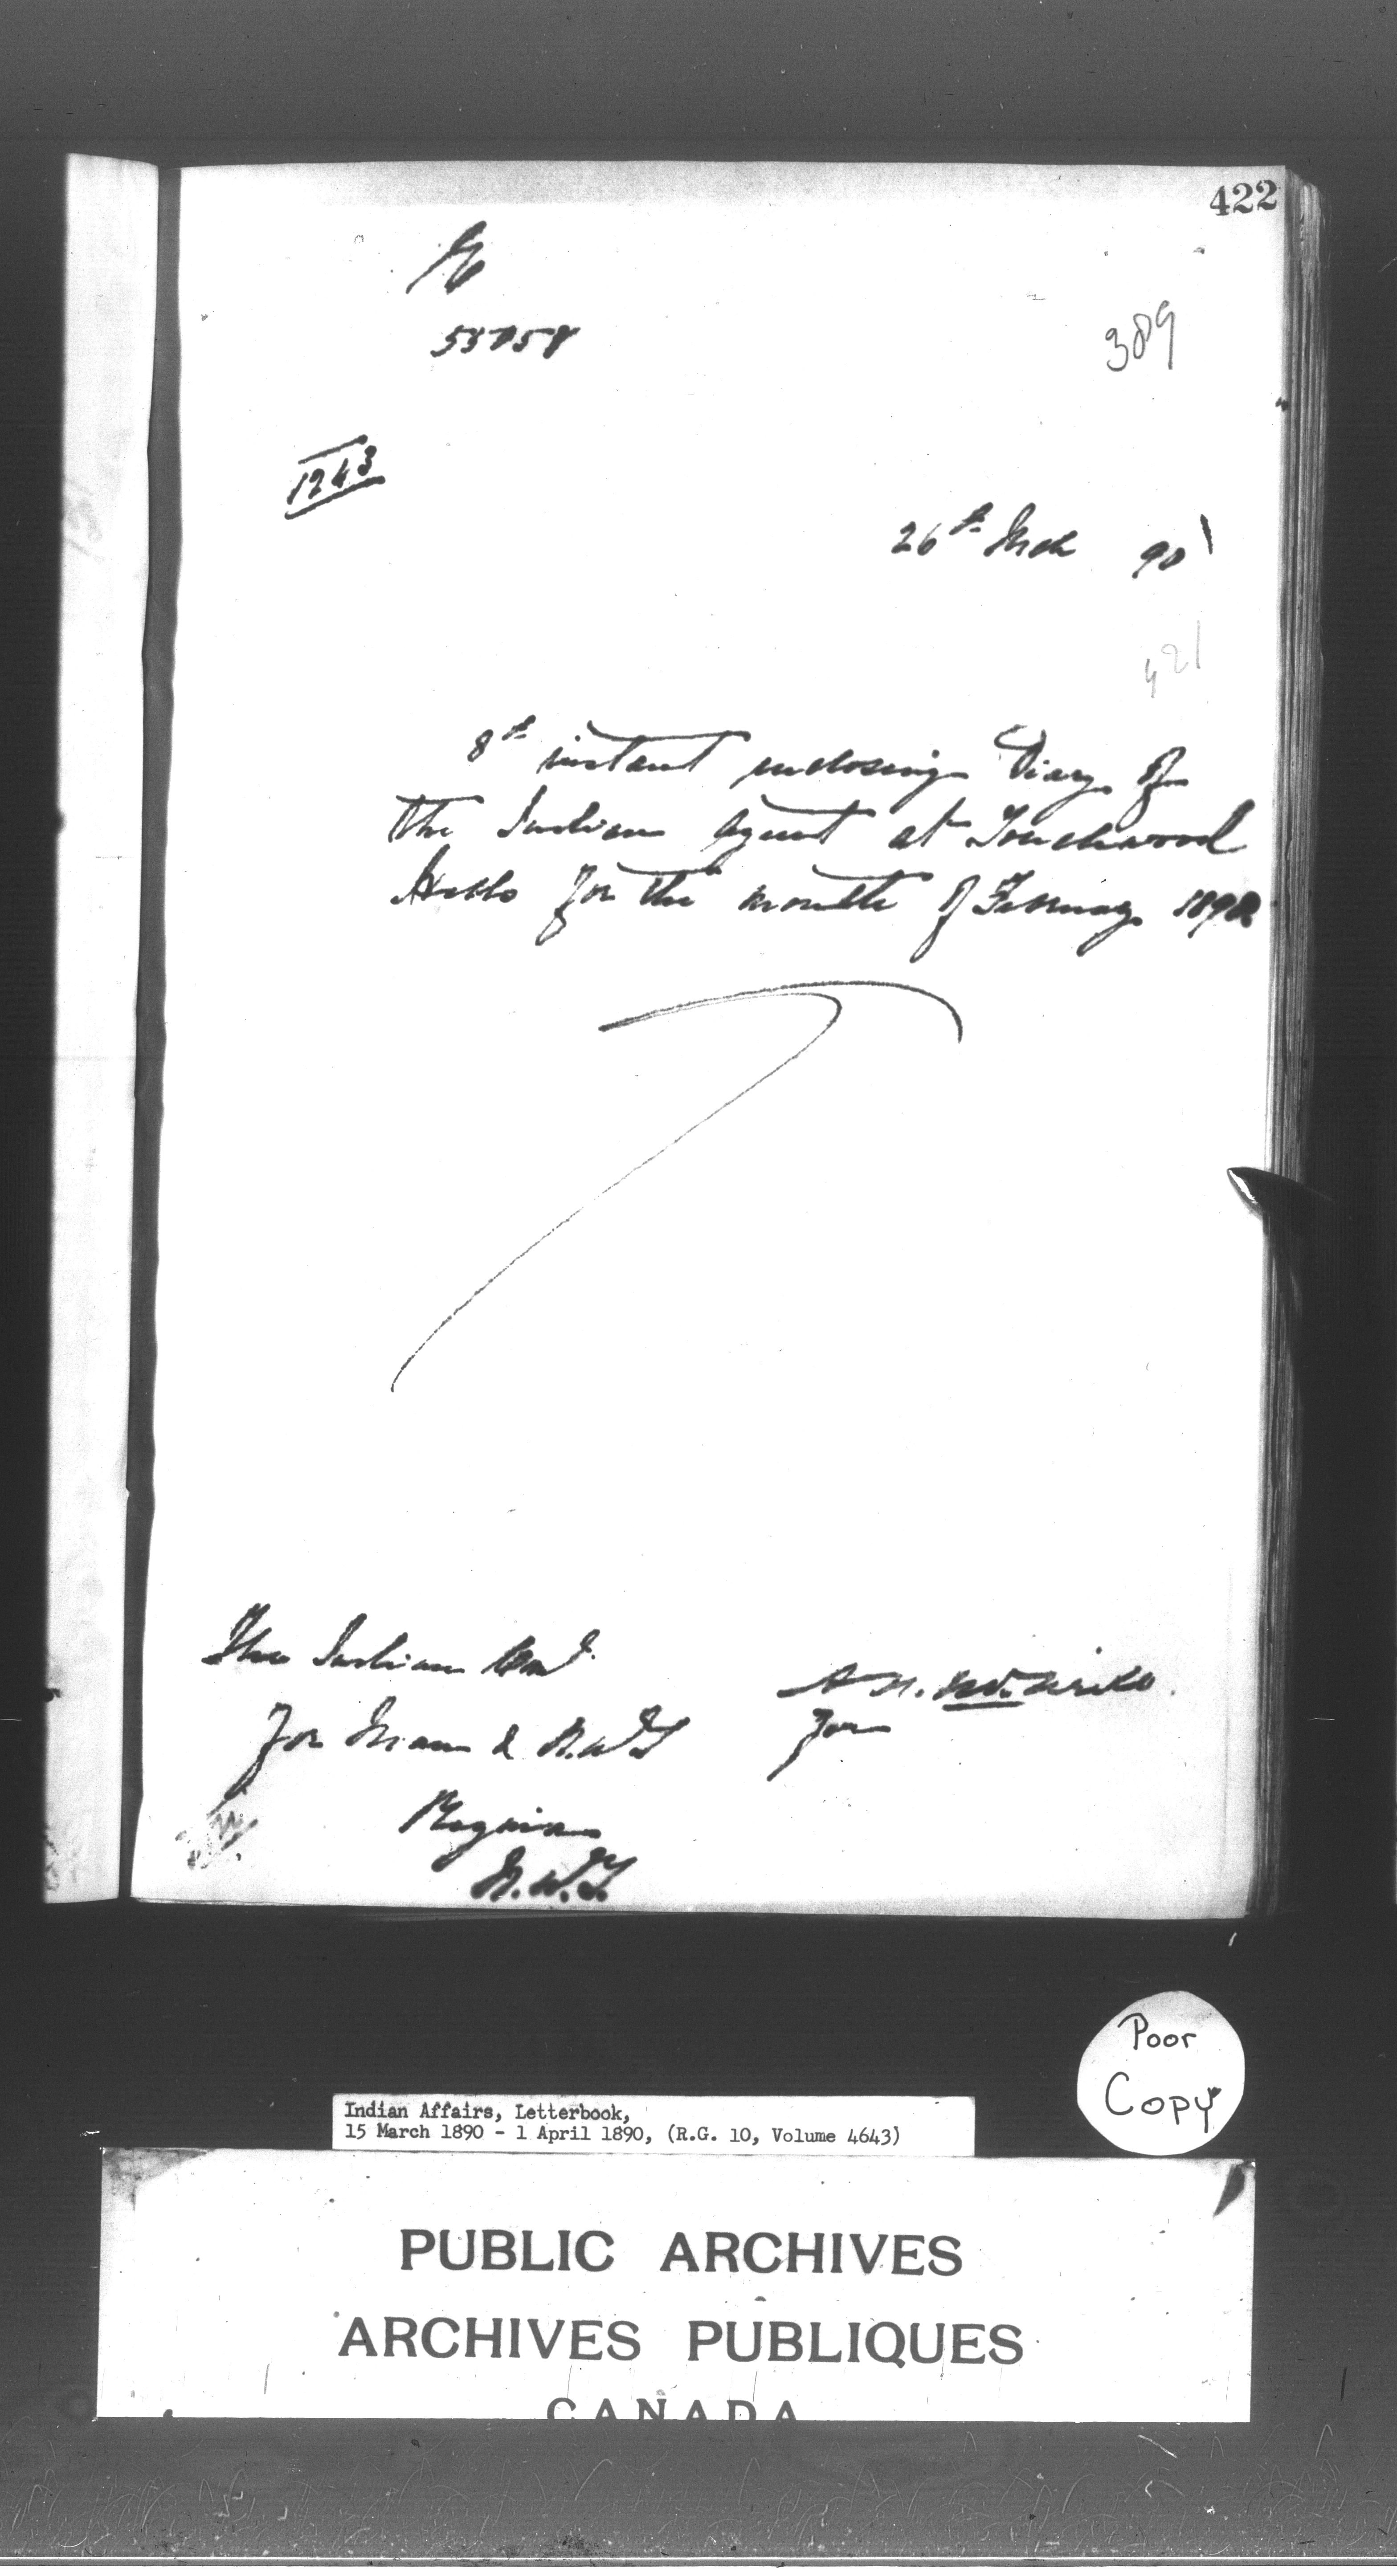 422
389
1243
26th Mch 90
421
8th instant enclosing Diary of
the Indian Agent at Touchwood
Hills for the month of February 1890
The Indian Comr
for Man & N.W.T
Regina
N.W.T.
for
Poor
Copy
Indian Affairs, Letterbook,
15 March 1890 - 1 April 1890, (R.G. 10, Volume 4643)
PUBLIC ARCHIVES
ARCHIVES PUBLIQUES
CANADA